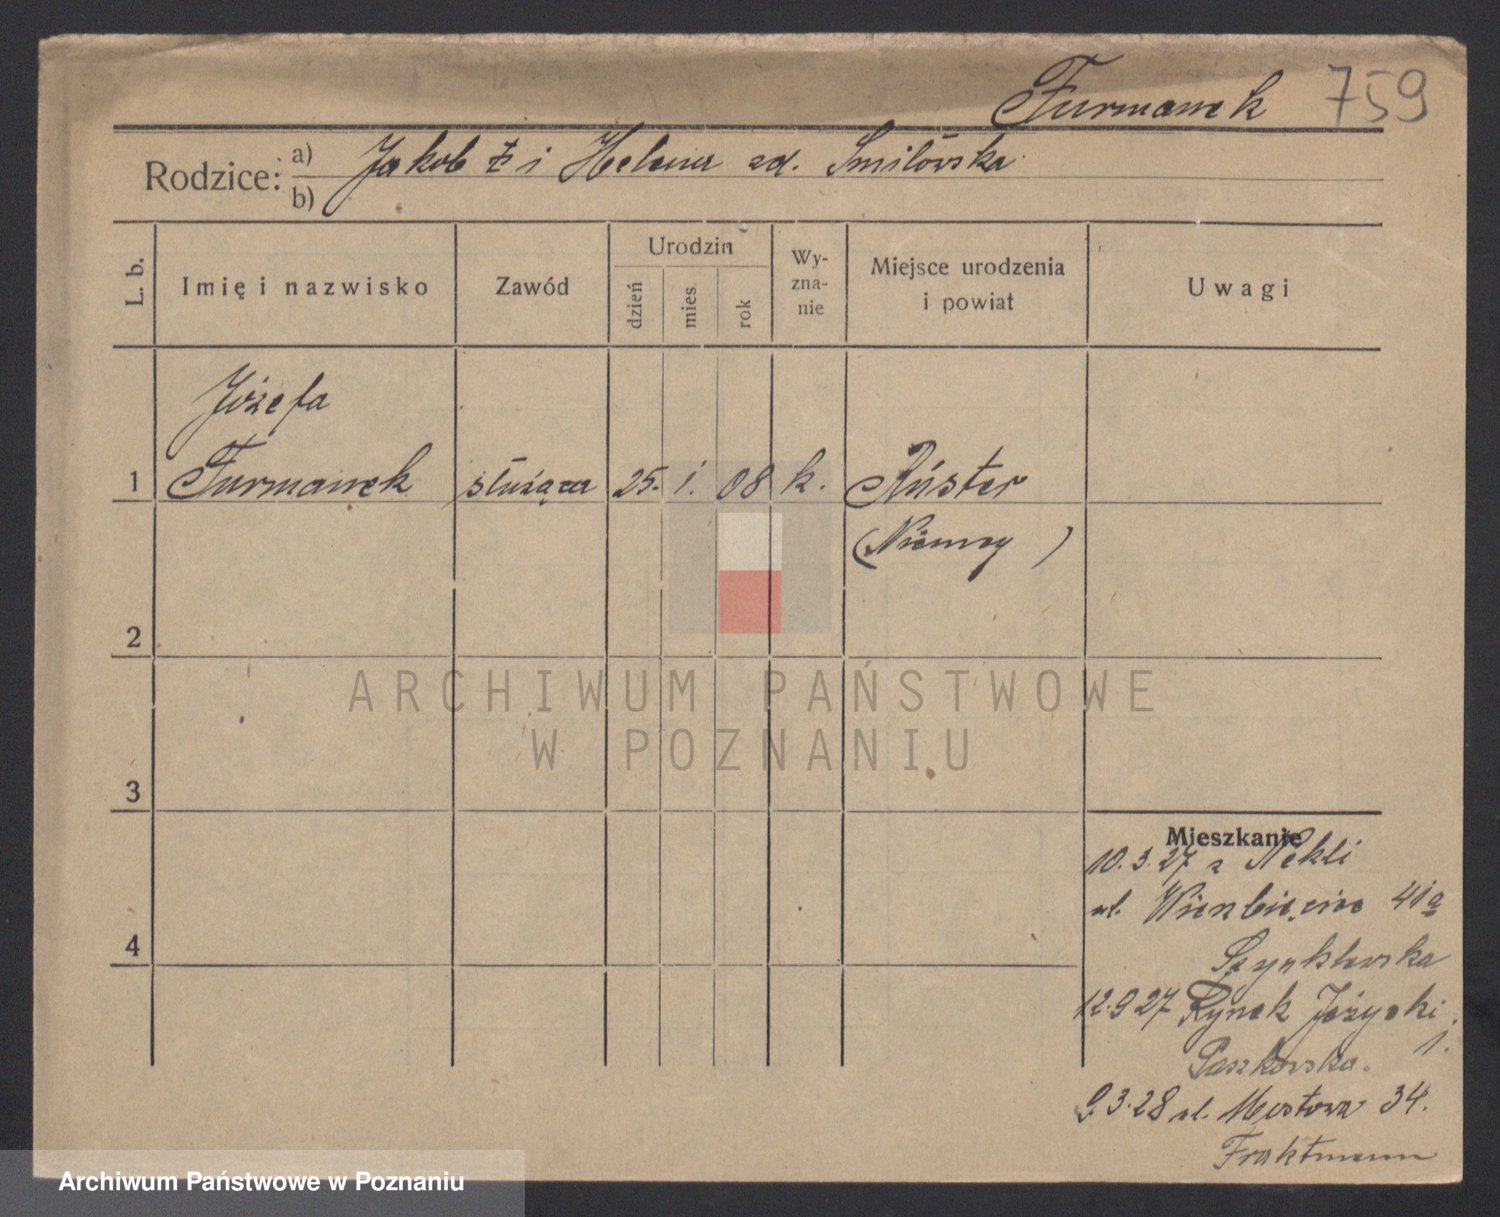 Furmanek 759
Rodzice: a) Jakob i Helena zd. Smilowska
b)
L. b.
Imię i nazwisko
Zawód
Urodzin
dzień
mies.
rok
Wy-
zna-
nie
Miejsce urodzenia
i powiat
Uwagi
Józefa
1 Furmanek służąca 25. 1. 08 k.
(Niemcy)
2
3
4
ARCHIWUM PAŃSTWOWE
W POZNANIU
Mieszkanie
10.3.27 z Nekli
ul. Wierzbięcice 41a
12.9.27 Rynek Jeżycki
1.
Paszkowska.
9.3.28 ul. Mostowa 34.
Archiwum Państwowe w Poznaniu